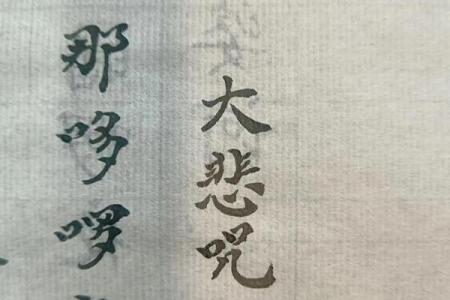 大悲咒
那哆啰